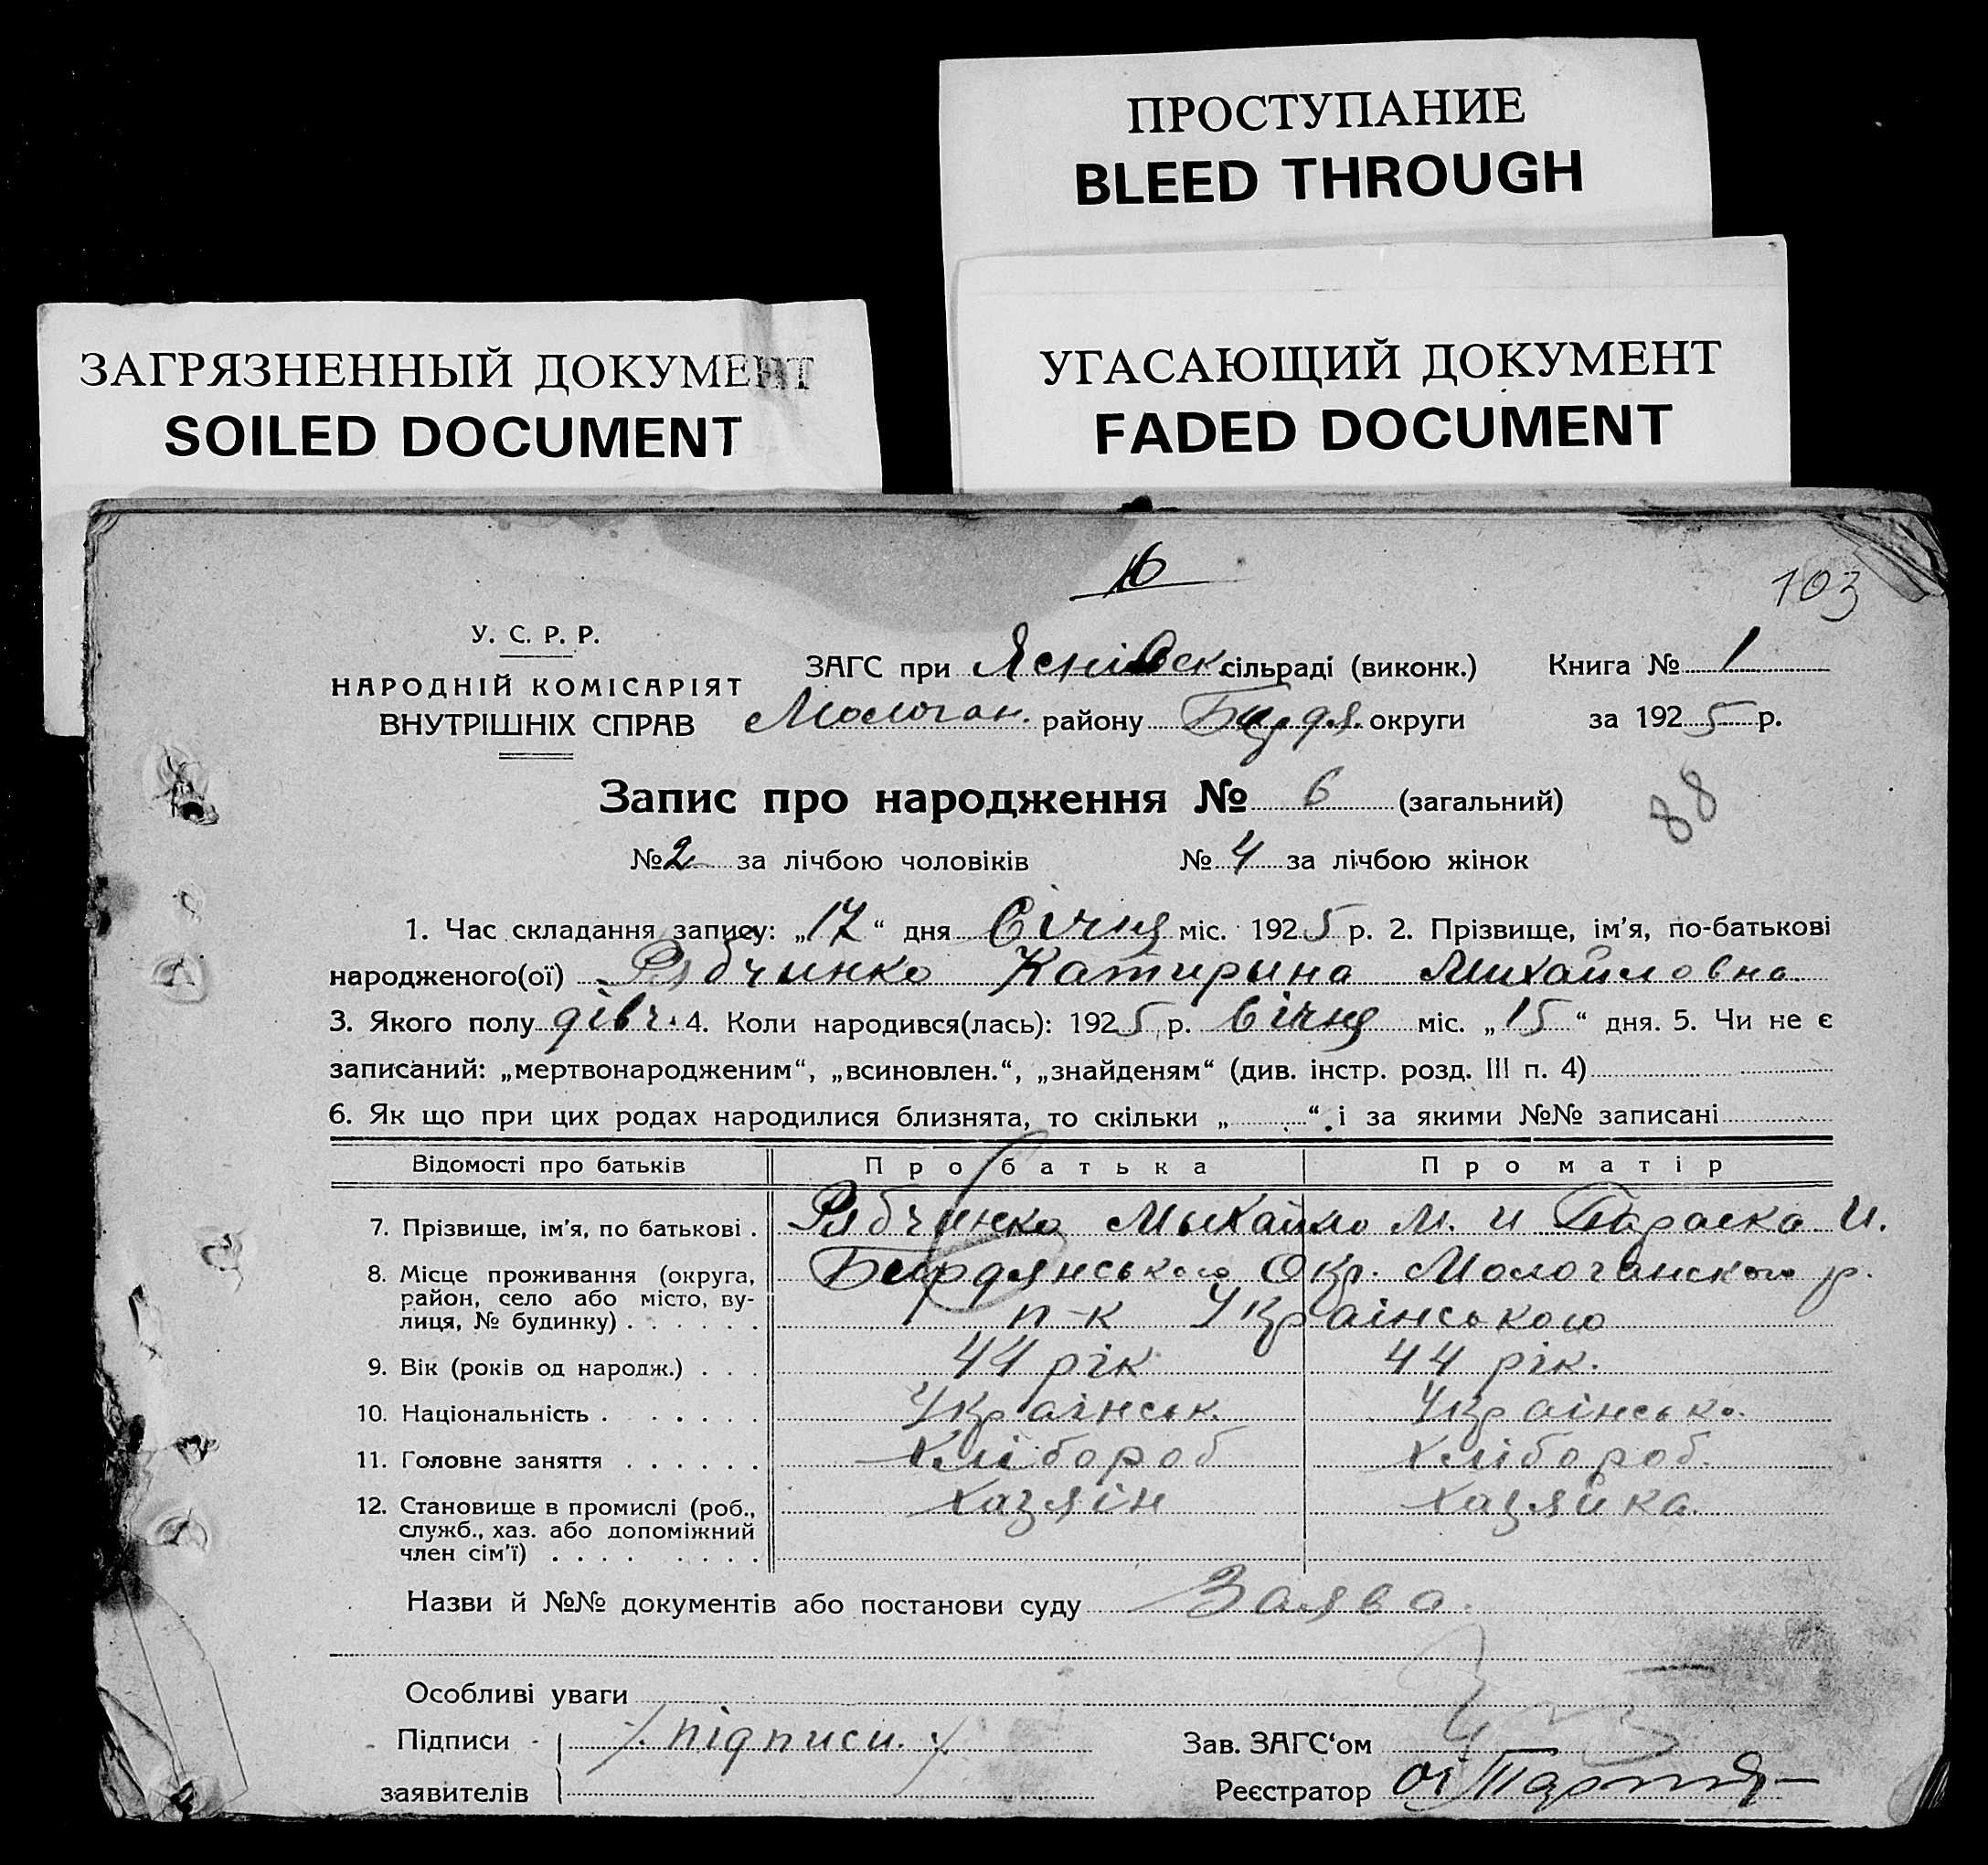 ПРОСТУПАНИЕ
BLEED THROUGH
ЗАГРЯЗНЕННЫЙ ДОКУМЕНТ
SOILED DOCUMENT
УГАСАЮЩИЙ ДОКУМЕНТ
FADED DOCUMENT
103
У. С. Р. Р.
НАРОДНІЙ КОМІСАРІЯТ
ВНУТРІШНІХ СПРАВ
ЗАГС при Яснівск. сільраді (виконк.) Книга № 1
Молочан. району Бердя. округи за 1925 р.
Запис про народження № 6 (загальний)
88
№ 2 за лічбою чоловіків № 4 за лічбою жінок
1. Час складання запису: „17“ дня Січня міс. 1925 р. 2. Прізвище, ім'я, по-батькові
народженого(ої) Рябчинко Катирина Михайловна
3. Якого полу дівч. 4. Коли народився(лась): 1925 р. Січня міс. „15“ дня. 5. Чи не є
записаний: „мертвонародженим“, „всиновлен.“, „знайденям“ (див. інстр. розд. III п. 4)
6. Як що при цих родах народилися близнята, то скільки „ “ і за якими №№ записані
Відомості про батьків Про батька Про матір
7. Прізвище, ім'я, по батькові . Рябчинко Мыхайло М. и Параска И.
8. Місце проживання (округа, Бердянського Окр. Молочанского р.
район, село або місто, ву-
лиця, № будинку) . . . . . . п-к Українського
9. Вік (років од народж.) . . . 44 рік 44 рік.
10. Національність . . . . . . Українськ. Українськ.
11. Головне заняття . . . . . . Хлібороб Хлібороб.
12. Становище в промислі (роб., Хазяін Хазяйка.
служб., хаз. або допоміжний
член сім'ї) . . . . . . . . .
Назви й №№ документів або постанови суду Заява.
Особливі уваги
Підписи /. підписи. ./ Зав. ЗАГС‘ом
заявителів Реєстратор